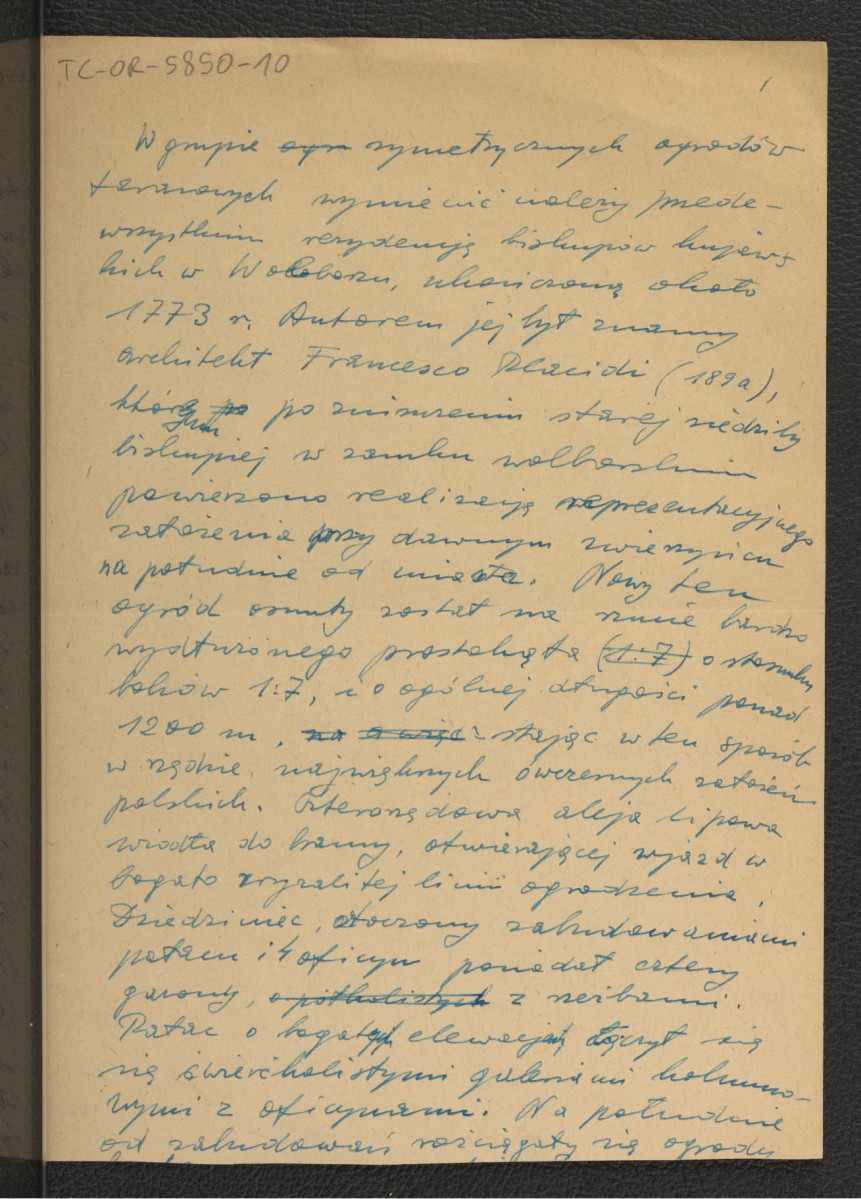 TC-OR-5850-10
1
W grupie ogr symetrycznych ogrodów
tarasowych wymienić należy przede-
wszystkim rezydencję biskupów kujaws
kich w Wolborzu, ukończoną około
1773 r. Autorem jej był znany
architekt Francesco Placidi (189a),
któremu po po zniszczeniu starej siedziby
biskupiej w zamku wolborskim
powierzono realizację reprezentacyjnego
założenia przy dawnym zwierzyńcu
na południe od miasta. Nowy ten
ogród osnuty został na rzucie bardzo
wydłużonego prostokąta (1:7) o stosunku
boków 1:7, i o ogólnej długości ponad
1200 m, na a więc stając w ten sposób
w rzędzie największych ówczesnych założeń
polskich. Czterorzędowa aleja lipowa
wiodła do bramy, otwierającej wjazd w
bogato zryzalitej linii ogrodzenia.
Dziedziniec, otoczony zabudowaniami
pałacu i 4 oficyn posiadał cztery
gazony, o półkolistych z rzeźbami.
Pałac o bogatych elewacjach łączył się
się ćwierćkolistymi galeriami kolumno-
wymi z oficynami. Na południe
od zabudowań rozciągały się ogrody